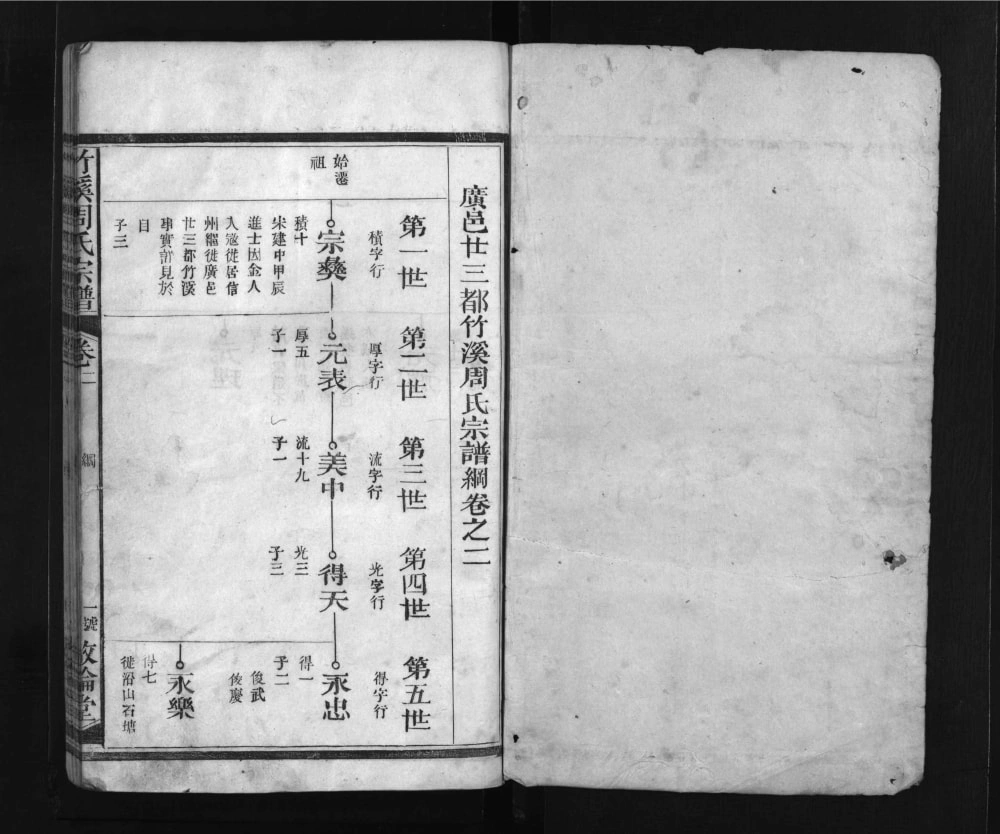 廣邑廿三都竹溪周氏宗譜綱卷之二
第一世
積字行
第二世
厚字行
第三世
流字行
第四世
光字行
第五世
得字行
始遷
祖
宗彝
積十
宋建中甲辰
進士因金人
入寇徙居信
州繼徙廣邑
廿三都竹溪
事實詳見於
目
子三
元表
厚五
子一
美中
流十九
子一
得天
光三
子三
永忠
得一
子二
俊武
俊慶
永樂
得七
徙沿山石塘
竹溪周氏宗譜
卷二
綱
一號
敦倫堂